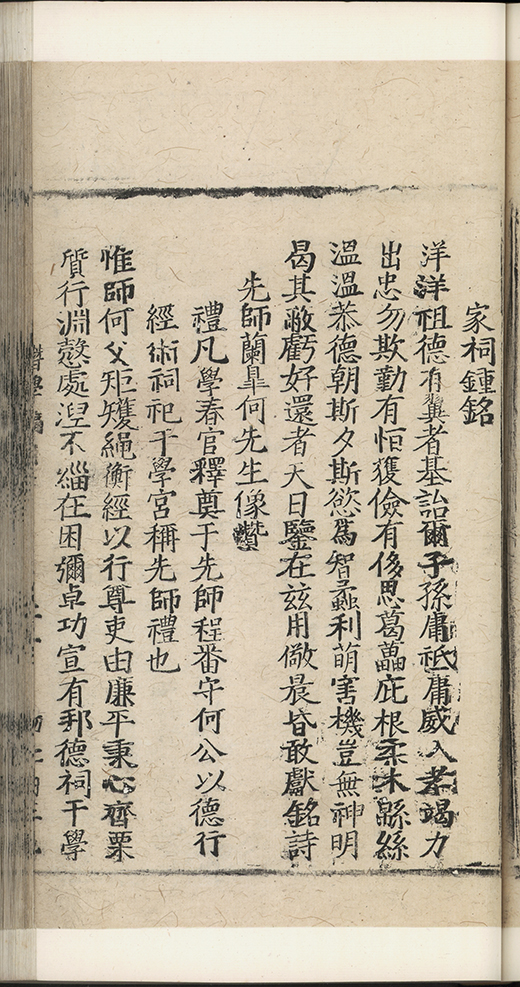 家祠鍾銘
洋洋祖德有翼者基詒爾子孫庸祗庸威入孝竭力
出忠勿欺勤有恒獲儉有侈思葛藟庇根柔木緜絲
溫溫恭德朝斯夕斯慾為智蟊利萌害機豈無神明
曷其敢虧好還者天日鑒在茲用儆晨昏敢獻銘詩
先師蘭皐何先生像贊
禮凡學春官釋奠于先師程番守何公以德行
經術祠祀于學宮稱先師禮也
惟師何父矩矱繩衡經以行尊吏由廉平秉心齊栗
質行淵愨處涅不緇在困彌卓功宣有邦德祠于學